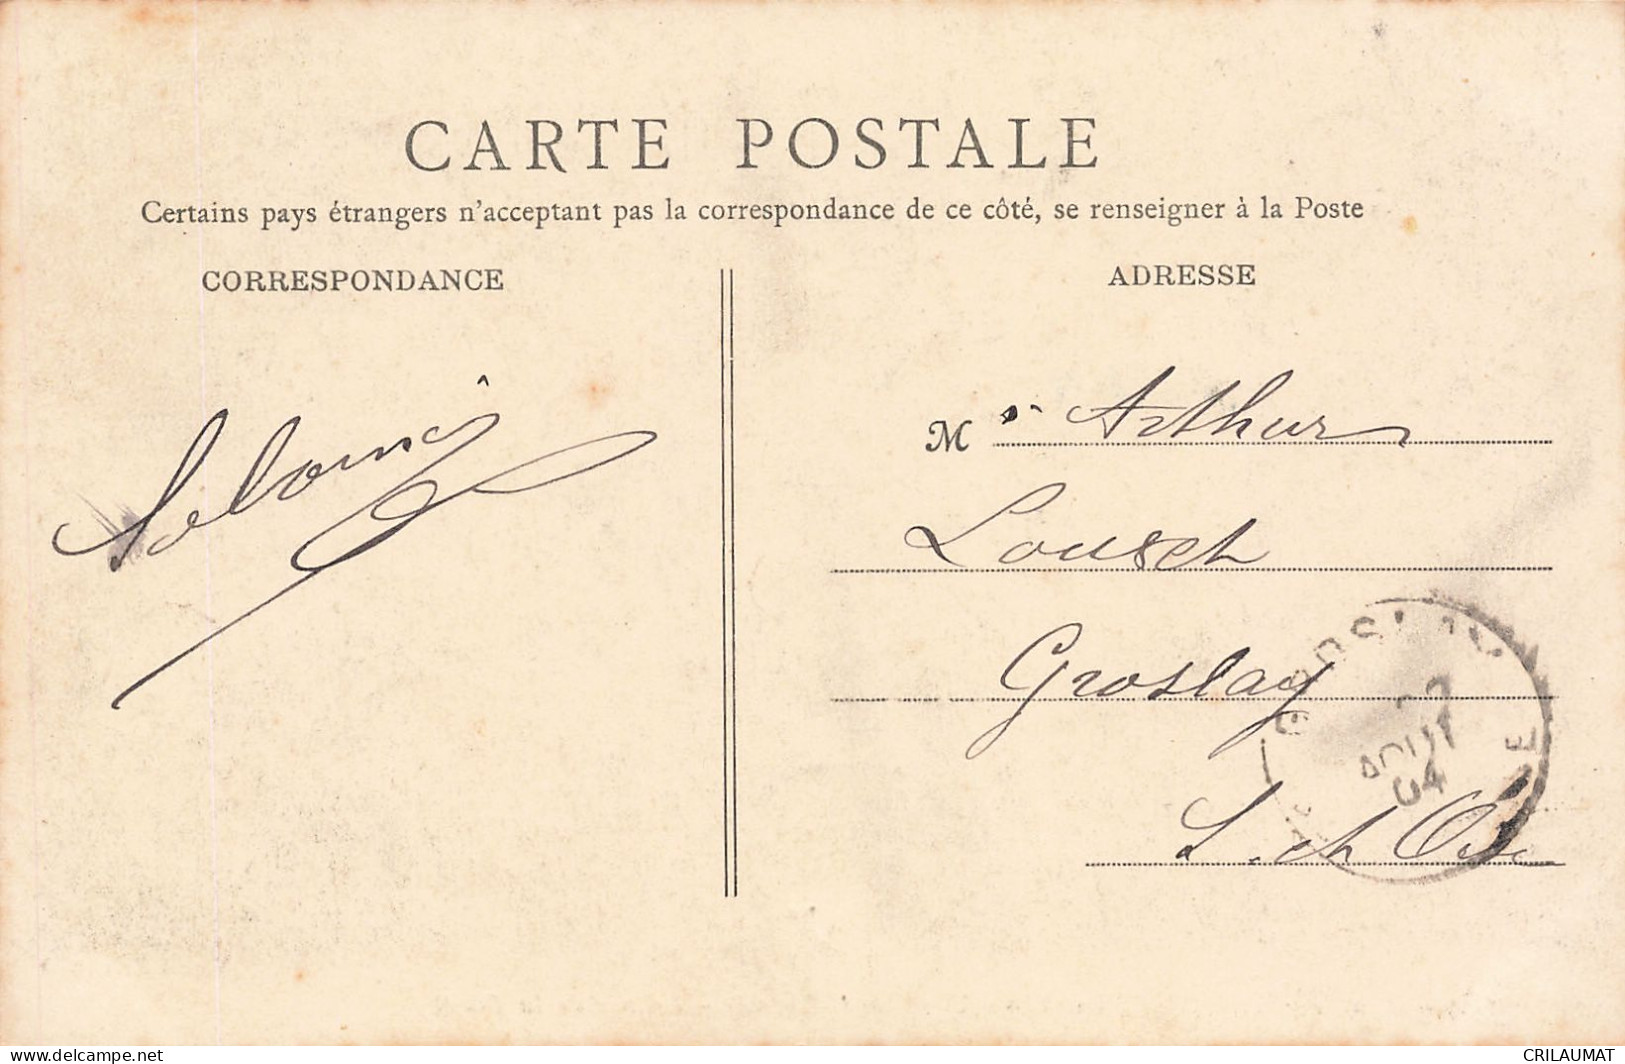 CARTE POSTALE
Certains pays étrangers n'acceptant pas la correspondance de ce côté, se renseigner à la Poste
CORRESPONDANCE
ADRESSE
M Arthur
Lousch
Groslay
S. et Oise
GROSLAY
AOUT
04
www.delcampe.net
CRILAUMAT